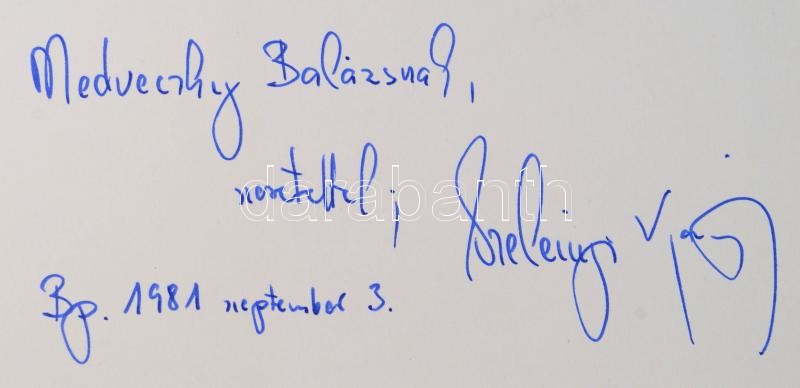 Medveczky Balázsnak,
szeretettel;
darabanth
Szelényi
Bp. 1981 szeptember 3.